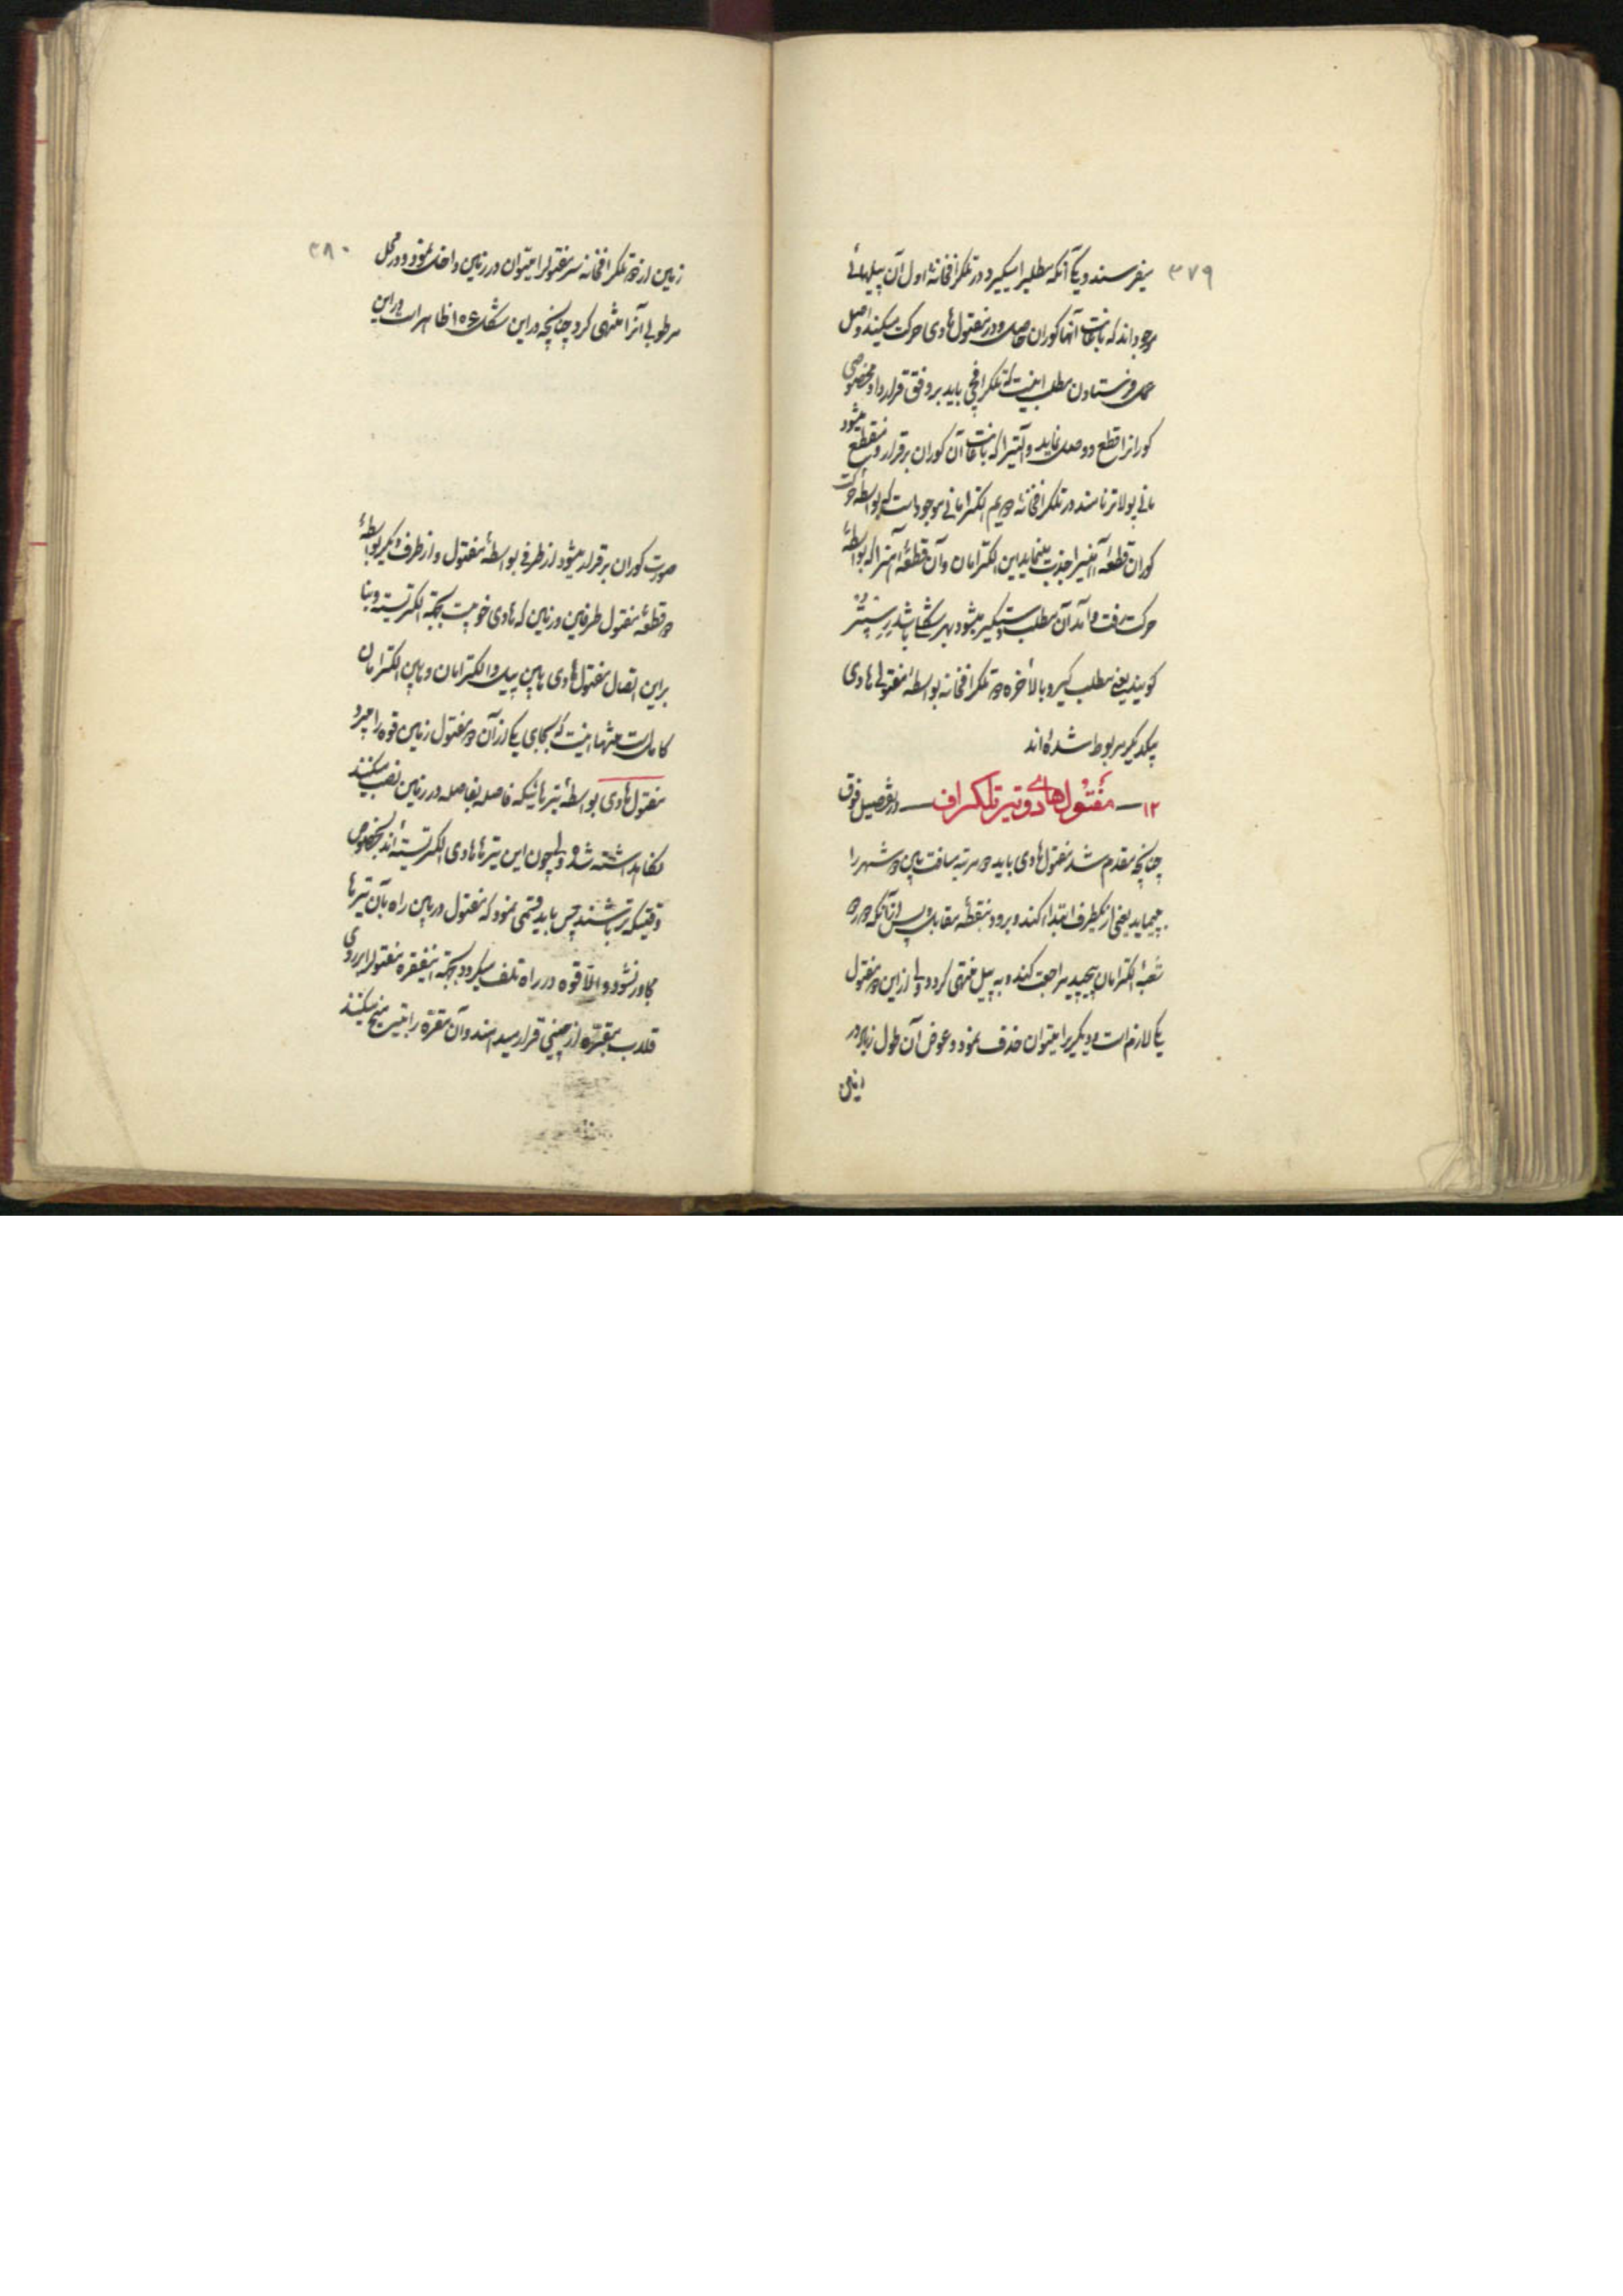 ۳۷۹
میفرستند و یکی آنکه مطلب را میگیرد در تلگرافخانهٔ اول آن پیلهائی
موجوداند که باعانت آنها کوران حاصل و در مفتول هادی حرکت میکند و اصل
عمل فرستادن مطلب اینست که تلگرافچی باید بر وفق قرارداد مخصوصی
کوران را قطع و وصل نماید و آلتی را که باعانت آن کوران برقرار و منقطع میشود
مانی پولاتر نامند در تلگرافخانهٔ دویم الکترامانی موجود است که بواسطهٔ حرکت
کوران قطعهٔ آهنی را جذب مینماید این الکترامان و آن قطعهٔ آهن را که بواسطهٔ
حرکت رفت و آمد آن مطلب دستگیر میشود بهر شکلی باشد رسپتر
گویند یعنی مطلب گیر و بالاخره دو تلگرافخانه بواسطهٔ مفتولهای هادی
بیکدیگر مربوط شده‌اند
۱۲ — مفتول‌های هادی و تیر تلگراف — در تفصیل فوق
چنانچه مقدم شد مفتول هادی باید دو مرتبه مسافت بین دو شهر را
بپیماید یعنی از یکطرف ابتداء کند و برود بنقطهٔ مقابل و پس از آنکه دور دو
شعبهٔ الکترامان پیچید مراجعت کند و به پیل منتهی گردد ولی از این دو مفتول
یکی لازم است و دیگری را میتوان حذف نمود و عوض آن طول زمین در
زمین
۳۸۰
زمین از خود تلگرافخانه سر مفتول را میتوان در زمین داخل نمود و در محل
مرطوبی آنرا منتهی کرد چنانچه در این شکل ۱۵۶ ظاهر است در این
صورت کوران برقرار میشود از طرفی بواسطهٔ مفتول و از طرف دیگر بواسطهٔ
دو قطعهٔ مفتول طرفین و زمین که هادی خوبیست بجهة الکتریسته و بنا
براین اتصال مفتول هادی مابین پیل و الکترامان و مابین الکترامان
کامل است منتها اینست که بجای یکی از آن دو مفتول زمین قوه را میبرد
مفتول هادی بواسطهٔ تیرهائیکه فاصله بفاصله در زمین نصب میکنند
نگاهداشته شده ولی چون این تیرها هادی الکتریسته‌اند بخصوص
وقتیکه تر باشند پس باید قسمی نمود که مفتول در بین راه بآن تیرها
مجاور نشود و الا قوه در راه تلف میگردد بجهة اینفقره مفتول را بر روی
قلاب مقعره از چینی قرار میدهند و آن مقره را بتیر میخ میکنند